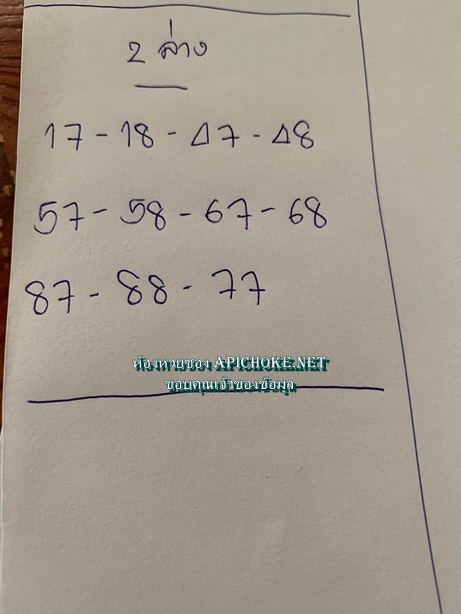 2 ล่าง
17 - 18 - 47 - 48
57 - 58 - 67 - 68
87 - 88 - 77
ห้องหวยซอง APICHOKE.NET
ขอบคุณเจ้าของข้อมูล